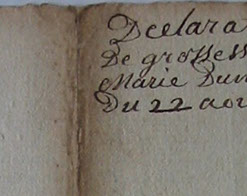 Declara
De grossess
Marie Dum
Du 22 aou